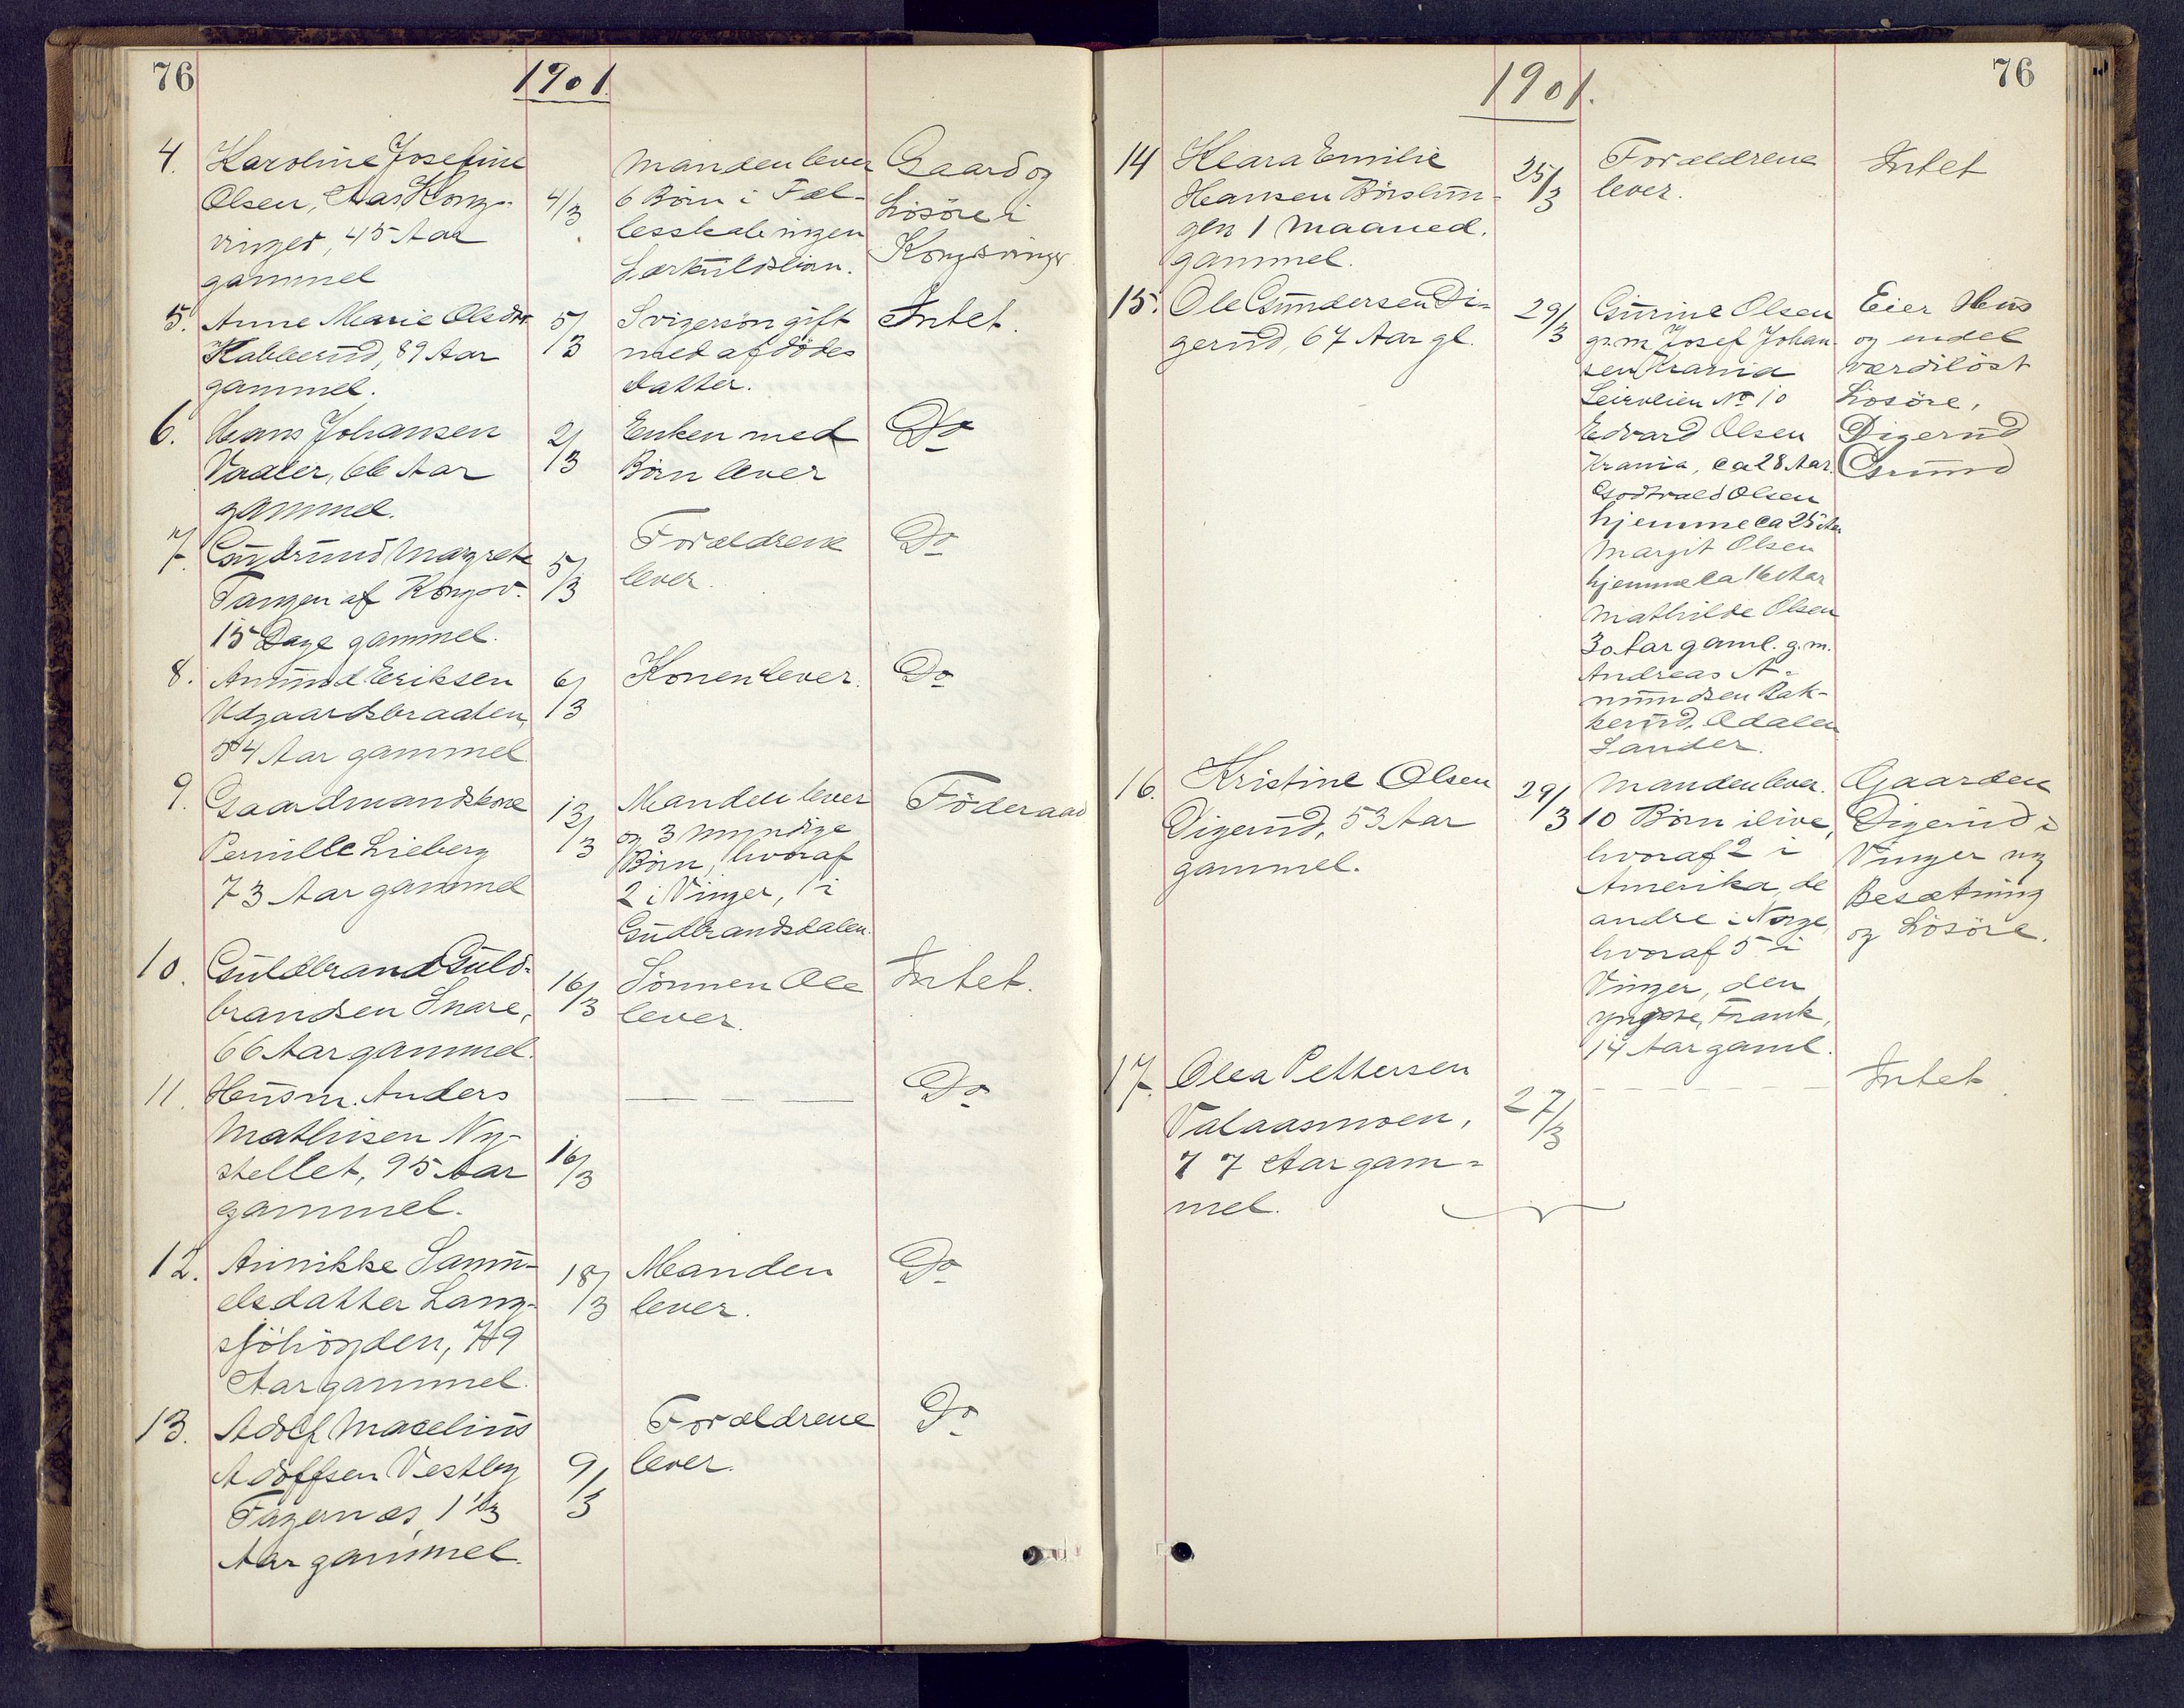 76
1901.
4. Karoline Josefine
Olsen, Aas Kongs-
vinger, 45 Aar
gammel
4/3
Manden lever
6 Börn i Fæl-
lesskab ingen
Særkuldsbörn.
Gaard og
Lösöre i
Kongsvinger
5. Anne Marie Olsdtr
Kablerud, 89 Aar
gammel.
5/3
Svigersön gift
med afdödes
datter.
Intet.
6. Hans Johansen
Vaaler, 66 Aar
gammel.
2/3
Enken med
Börn lever
Do
7. Gudrund Magrete
Tangen af Kongsv.
15 Dage gammel.
5/3
Forældrene
lever.
Do
8. Amund Eriksen
Udgaardsbraaten,
54 Aar gammel
6/3
Konen lever.
Do
9. Gaardmandskone
Pernille Lieberg
73 Aar gammel
12/3
Manden lever
og 3 myndige
Börn, hvoraf
2 i Vinger, 1 i
Gudbrandsdalen.
Föderaad
10. Guldbrand Guld-
brandsen Snare,
66 Aar gammel.
16/3
Sönnen Ole
lever.
Intet.
11. Husm. Anders
Mathisen Ny-
stellet, 95 Aar
gammel.
16/3
— — —
Do
12. Annikke Samu-
elsdatter Lang-
sjöhögden, 79
Aar gammel.
18/3
Manden
lever.
Do
13. Adolf Maselius
Adolffsen Vestby
Fagernæs, 1 1/3
Aar gammel.
9/3
Forældrene
lever.
Do
1901.
76
14 Klara Emilie
Hansen Börslun-
gen 1 Maaned.
gammel.
25/3
Forældrene
lever.
Intet
15. Ole Gundersen Di-
gerud, 67 Aar gl.
29/3
Gurine Olsen
gr. m Josef Johan
sen Krania
Leirveien No 10
Edvard Olsen
Krania, ca 28 Aar.
Godtvald Olsen
hjemme ca 25 Aar
Margit Olsen
hjemme ca 16 Aar
Mathilde Olsen
30 Aar gaml. g.m.
Andreas A-
mundsen Bak-
kerud, Adalen
Sander.
Eier Hus
og endel
værdilöst
Lösöre,
Digerud
Grund
16. Kristine Olsen
Digerud, 53 Aar
gammel.
29/3
Manden lever.
10 Börn ilive,
hvoraf 2 i
Amerika, de
andre i Norge,
hvoraf 5 i
Vinger, den
yngste, Frank,
14 Aar gaml.
Gaarden
Digerud i
Vinger og
Besætning
og Lösöre.
17. Olea Pettersen
Valaasmoen,
77 Aar gam-
mel.
27/3
— — — —
Intet